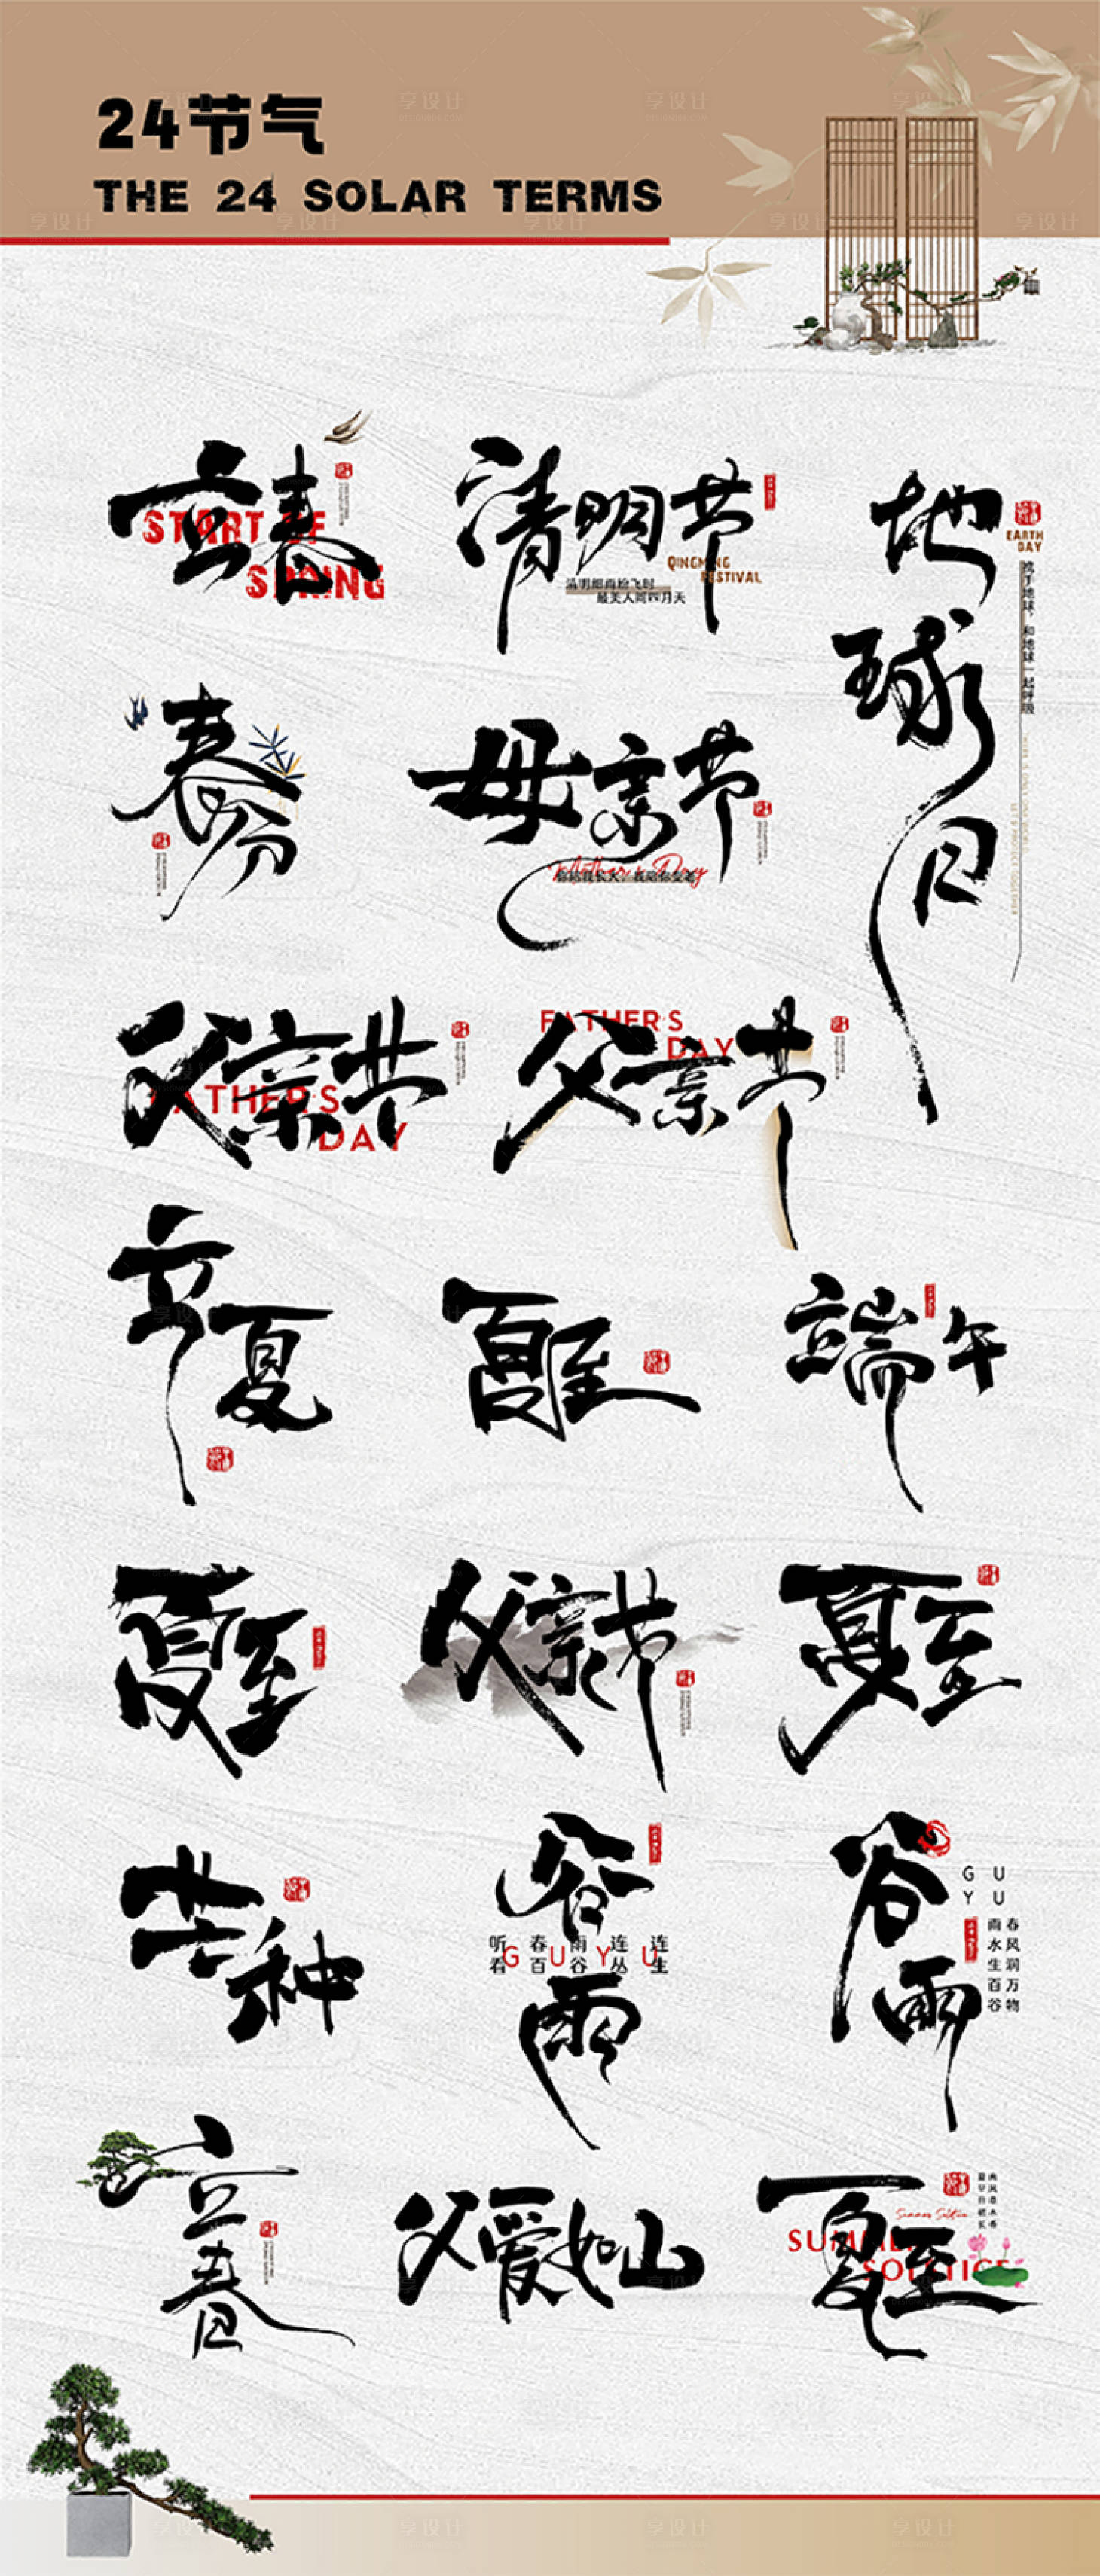 24节气
THE 24 SOLAR TERMS
立春
START OF
SPRING
清明节
QINGMING
FESTIVAL
清明细雨纷飞时
最美人间四月天
地球日
EARTH
DAY
携手地球，和地球一起呼吸
春分
母亲节
Mother's Day
你陪我长大，我陪你变老
父亲节
FATHER'S
DAY
父亲节
FATHER'S
DAY
立夏
夏至
端午
夏至
父亲节
夏至
芒种
谷雨
听春雨连连
看百谷丛生
GUYU
谷雨
GU
YU
春风润万物
雨水生百谷
立春
父爱如山
夏至
Summer Solstice
SUMMER
SOLSTICE
享设计